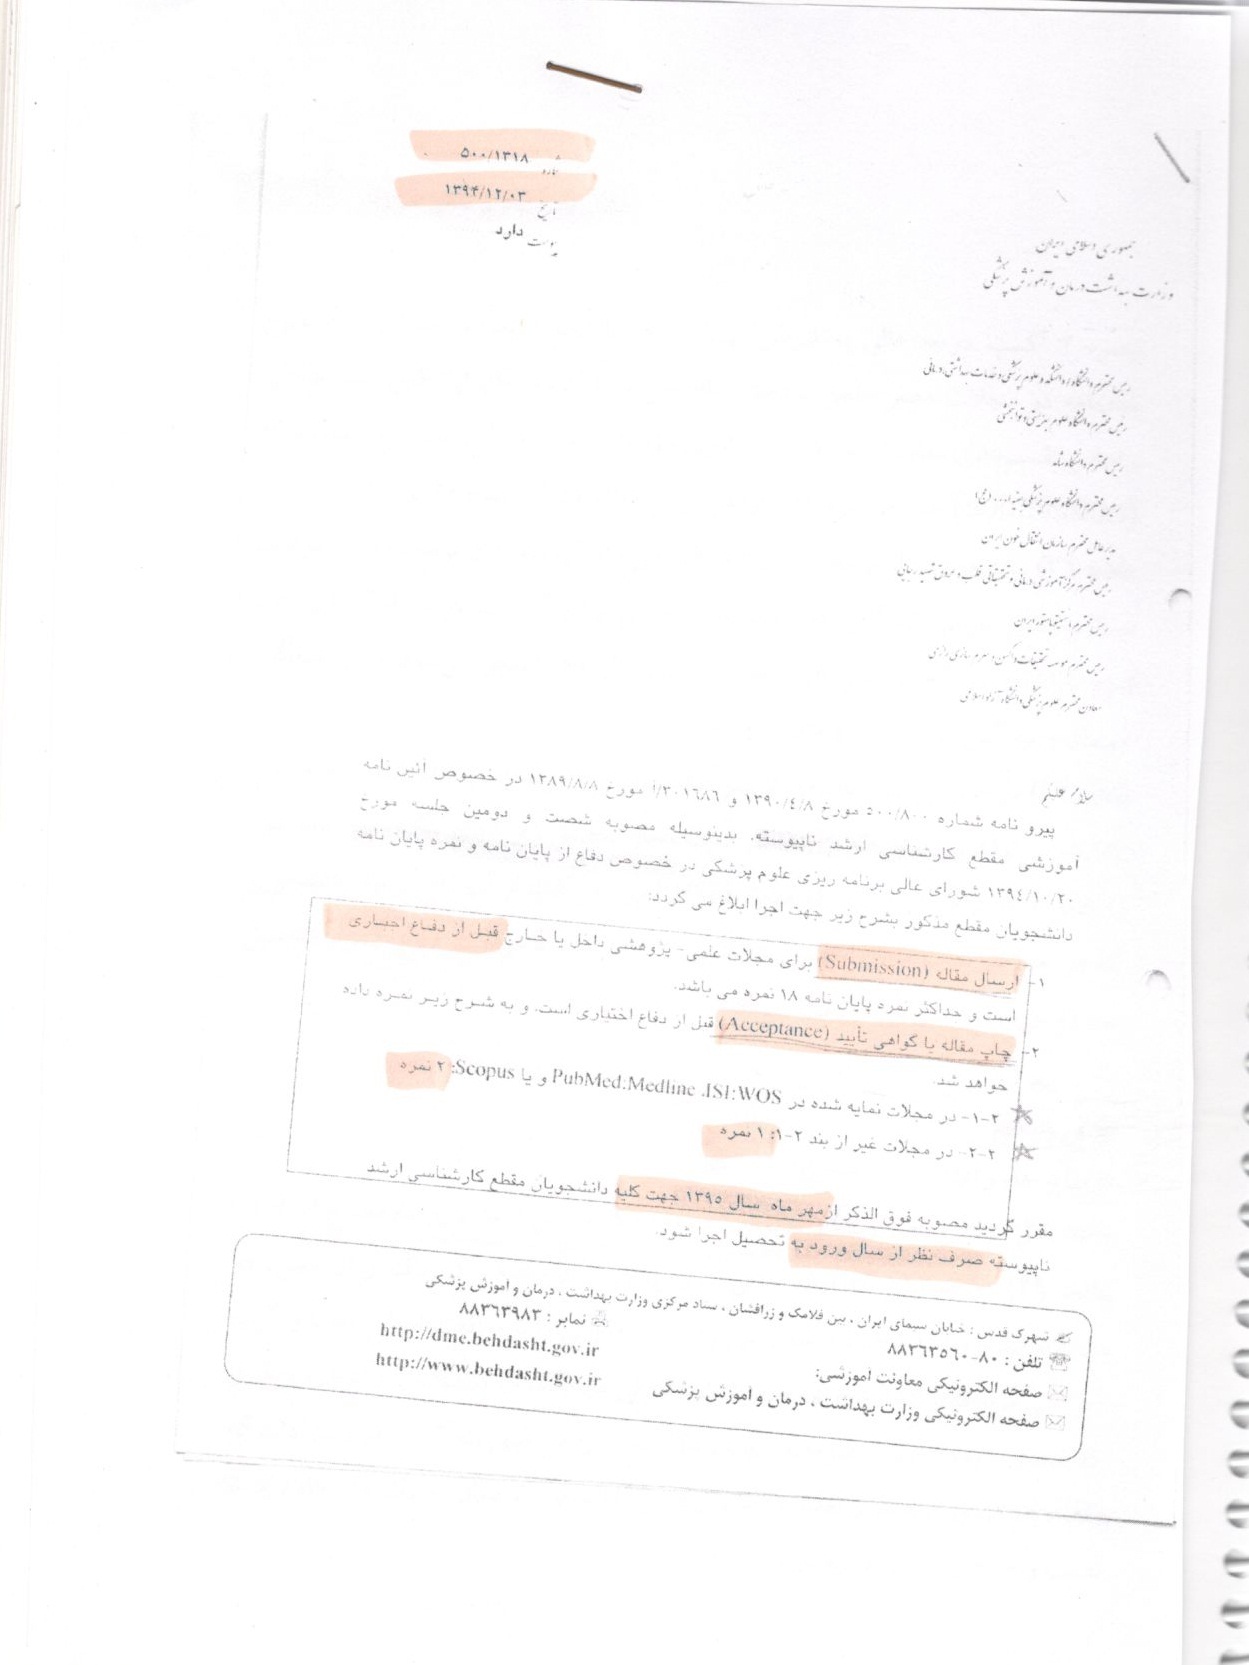 شماره ۵۰۰/۱۳۱۸
تاریخ ۱۳۹۴/۱۲/۰۳
پیوست دارد
جمهوری اسلامی ایران
وزارت بهداشت درمان و آموزش پزشکی
رییس محترم دانشگاه/دانشکده علوم پزشکی و خدمات بهداشتی درمانی
رییس محترم دانشگاه علوم بهزیستی و توانبخشی
رییس محترم دانشگاه شاهد
رییس محترم دانشگاه علوم پزشکی بقیه ا... (عج)
مدیر عامل محترم سازمان انتقال خون ایران
رییس محترم مرکز آموزشی درمانی و تحقیقاتی قلب و عروق شهید رجایی
رییس محترم انستیتو پاستور ایران
رییس محترم موسسه تحقیقات واکسن و سرم سازی رازی
معاون محترم علوم پزشکی دانشگاه آزاد اسلامی
سلام علیکم
پیرو نامه شماره ۵۰۰/۸۰۰ مورخ ۱۳۹۰/٤/۸ و ۳۰۱٦۸٦/آ مورخ ۱۳۸۹/۸/۸ در خصوص آئین نامه
آموزشی مقطع کارشناسی ارشد ناپیوسته، بدینوسیله مصوبه شصت و دومین جلسه مورخ
۱۳۹٤/۱۰/۲۰ شورای عالی برنامه ریزی علوم پزشکی در خصوص دفاع از پایان نامه و نمره پایان نامه
دانشجویان مقطع مذکور بشرح زیر جهت اجرا ابلاغ می گردد:
۱- ارسال مقاله (Submission) برای مجلات علمی- پژوهشی داخل یا خارج قبل از دفاع اجباری
است و حداکثر نمره پایان نامه ۱۸ نمره می باشد.
۲- چاپ مقاله یا گواهی تأیید (Acceptance) قبل از دفاع اختیاری است. و به شرح زیر نمره داده
خواهد شد.
۱-۲- در مجلات نمایه شده در PubMed:Medline ،ISI:WOS و یا Scopus: ۲ نمره
۲-۲- در مجلات غیر از بند ۲-۱: ۱ نمره
مقرر گردید مصوبه فوق الذکر از مهر ماه سال ۱۳۹۵ جهت کلیه دانشجویان مقطع کارشناسی ارشد
ناپیوسته صرف نظر از سال ورود به تحصیل اجرا شود.
شهرک قدس : خیابان سیمای ایران ، بین فلامک و زرافشان ، ستاد مرکزی وزارت بهداشت ، درمان و آموزش پزشکی
تلفن : ۸۰-۸۸۳٦۳٥٦۰ نمابر : ۸۸۳٦۳۹۸۳
صفحه الکترونیکی معاونت آموزشی: http://dme.behdasht.gov.ir
صفحه الکترونیکی وزارت بهداشت ، درمان و آموزش پزشکی http://www.behdasht.gov.ir